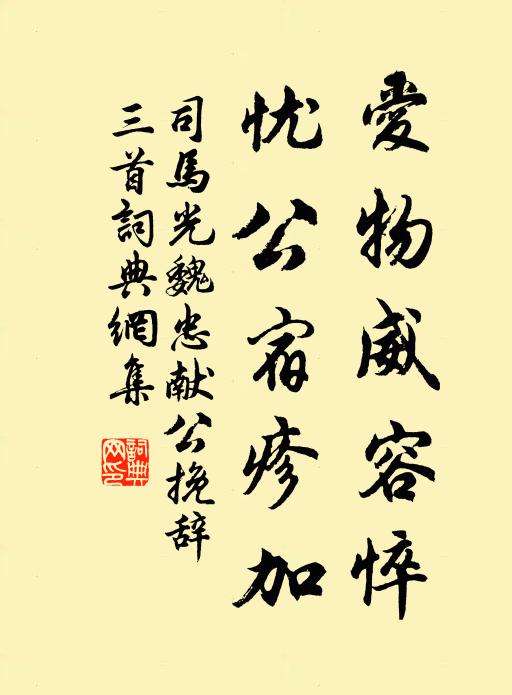 愛物威容悴
忧公宿疹加
司馬光魏忠献公挽辞
三首詞典網集
詞典網印